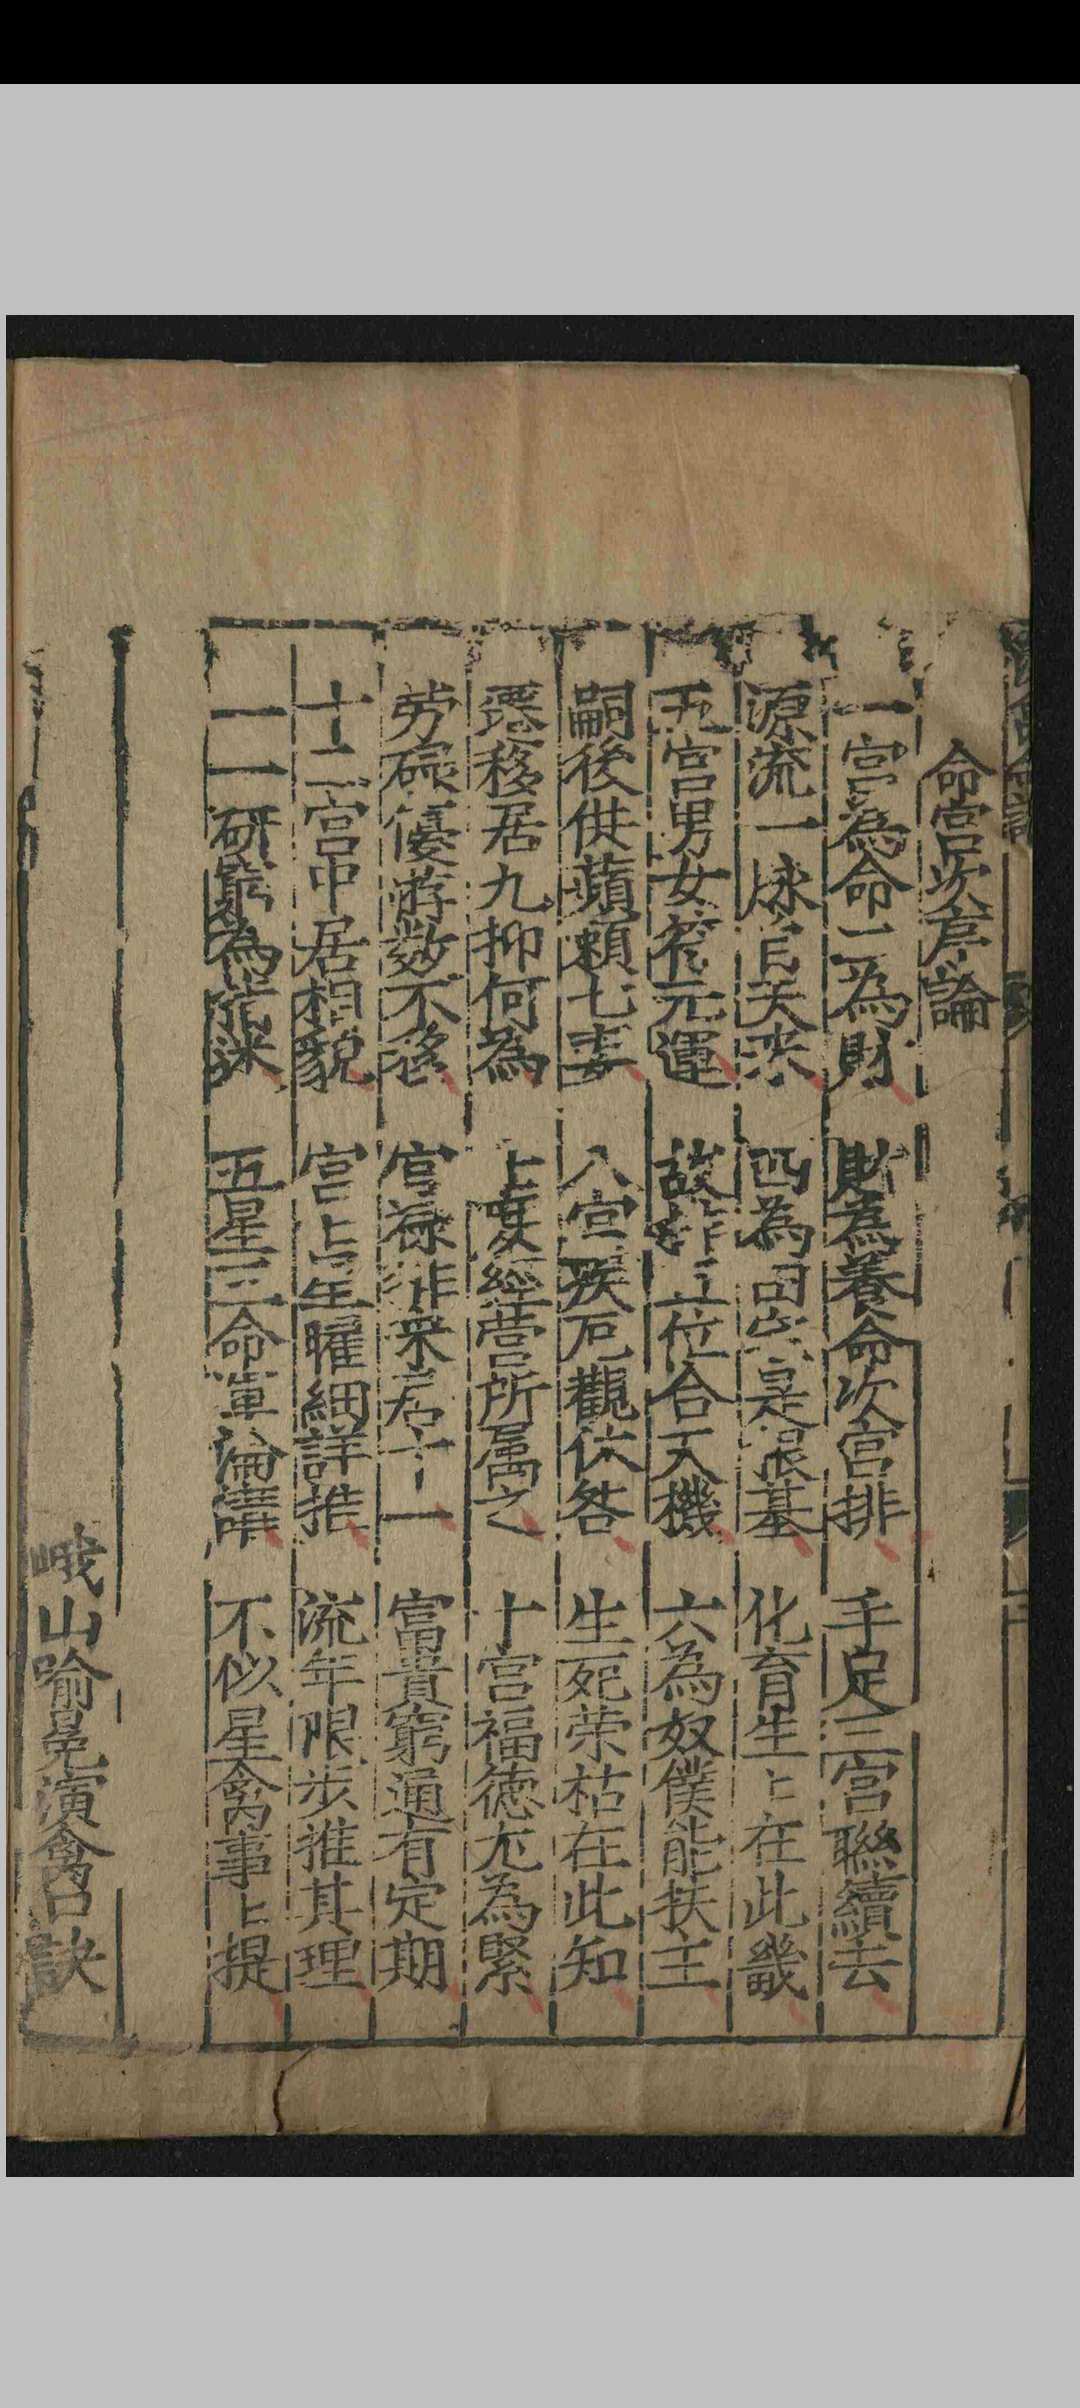 命宮次序論
一宮為命二為財 財為養命次宮排 手足三宮聯續去
源流一脉自天来 四為田宅是根基 化育生生在此畿
五宮男女管元運 故 立位合天機 六為奴僕能扶主
嗣後供蘋頼七妻 八宮疾厄觀休咎 生死荣枯在此知
遷移居九抑何為 上度經营所属之 十宮福德尤為緊
劳碌優游数不移 官禄非宗居十一 富貴窮通有定期
十二宮中居相貌 宮上星曜細詳推 流年限步推其理
一一研窮為指迷 五星三命單論講 不似星禽事上提
峨山喻冕演禽口訣